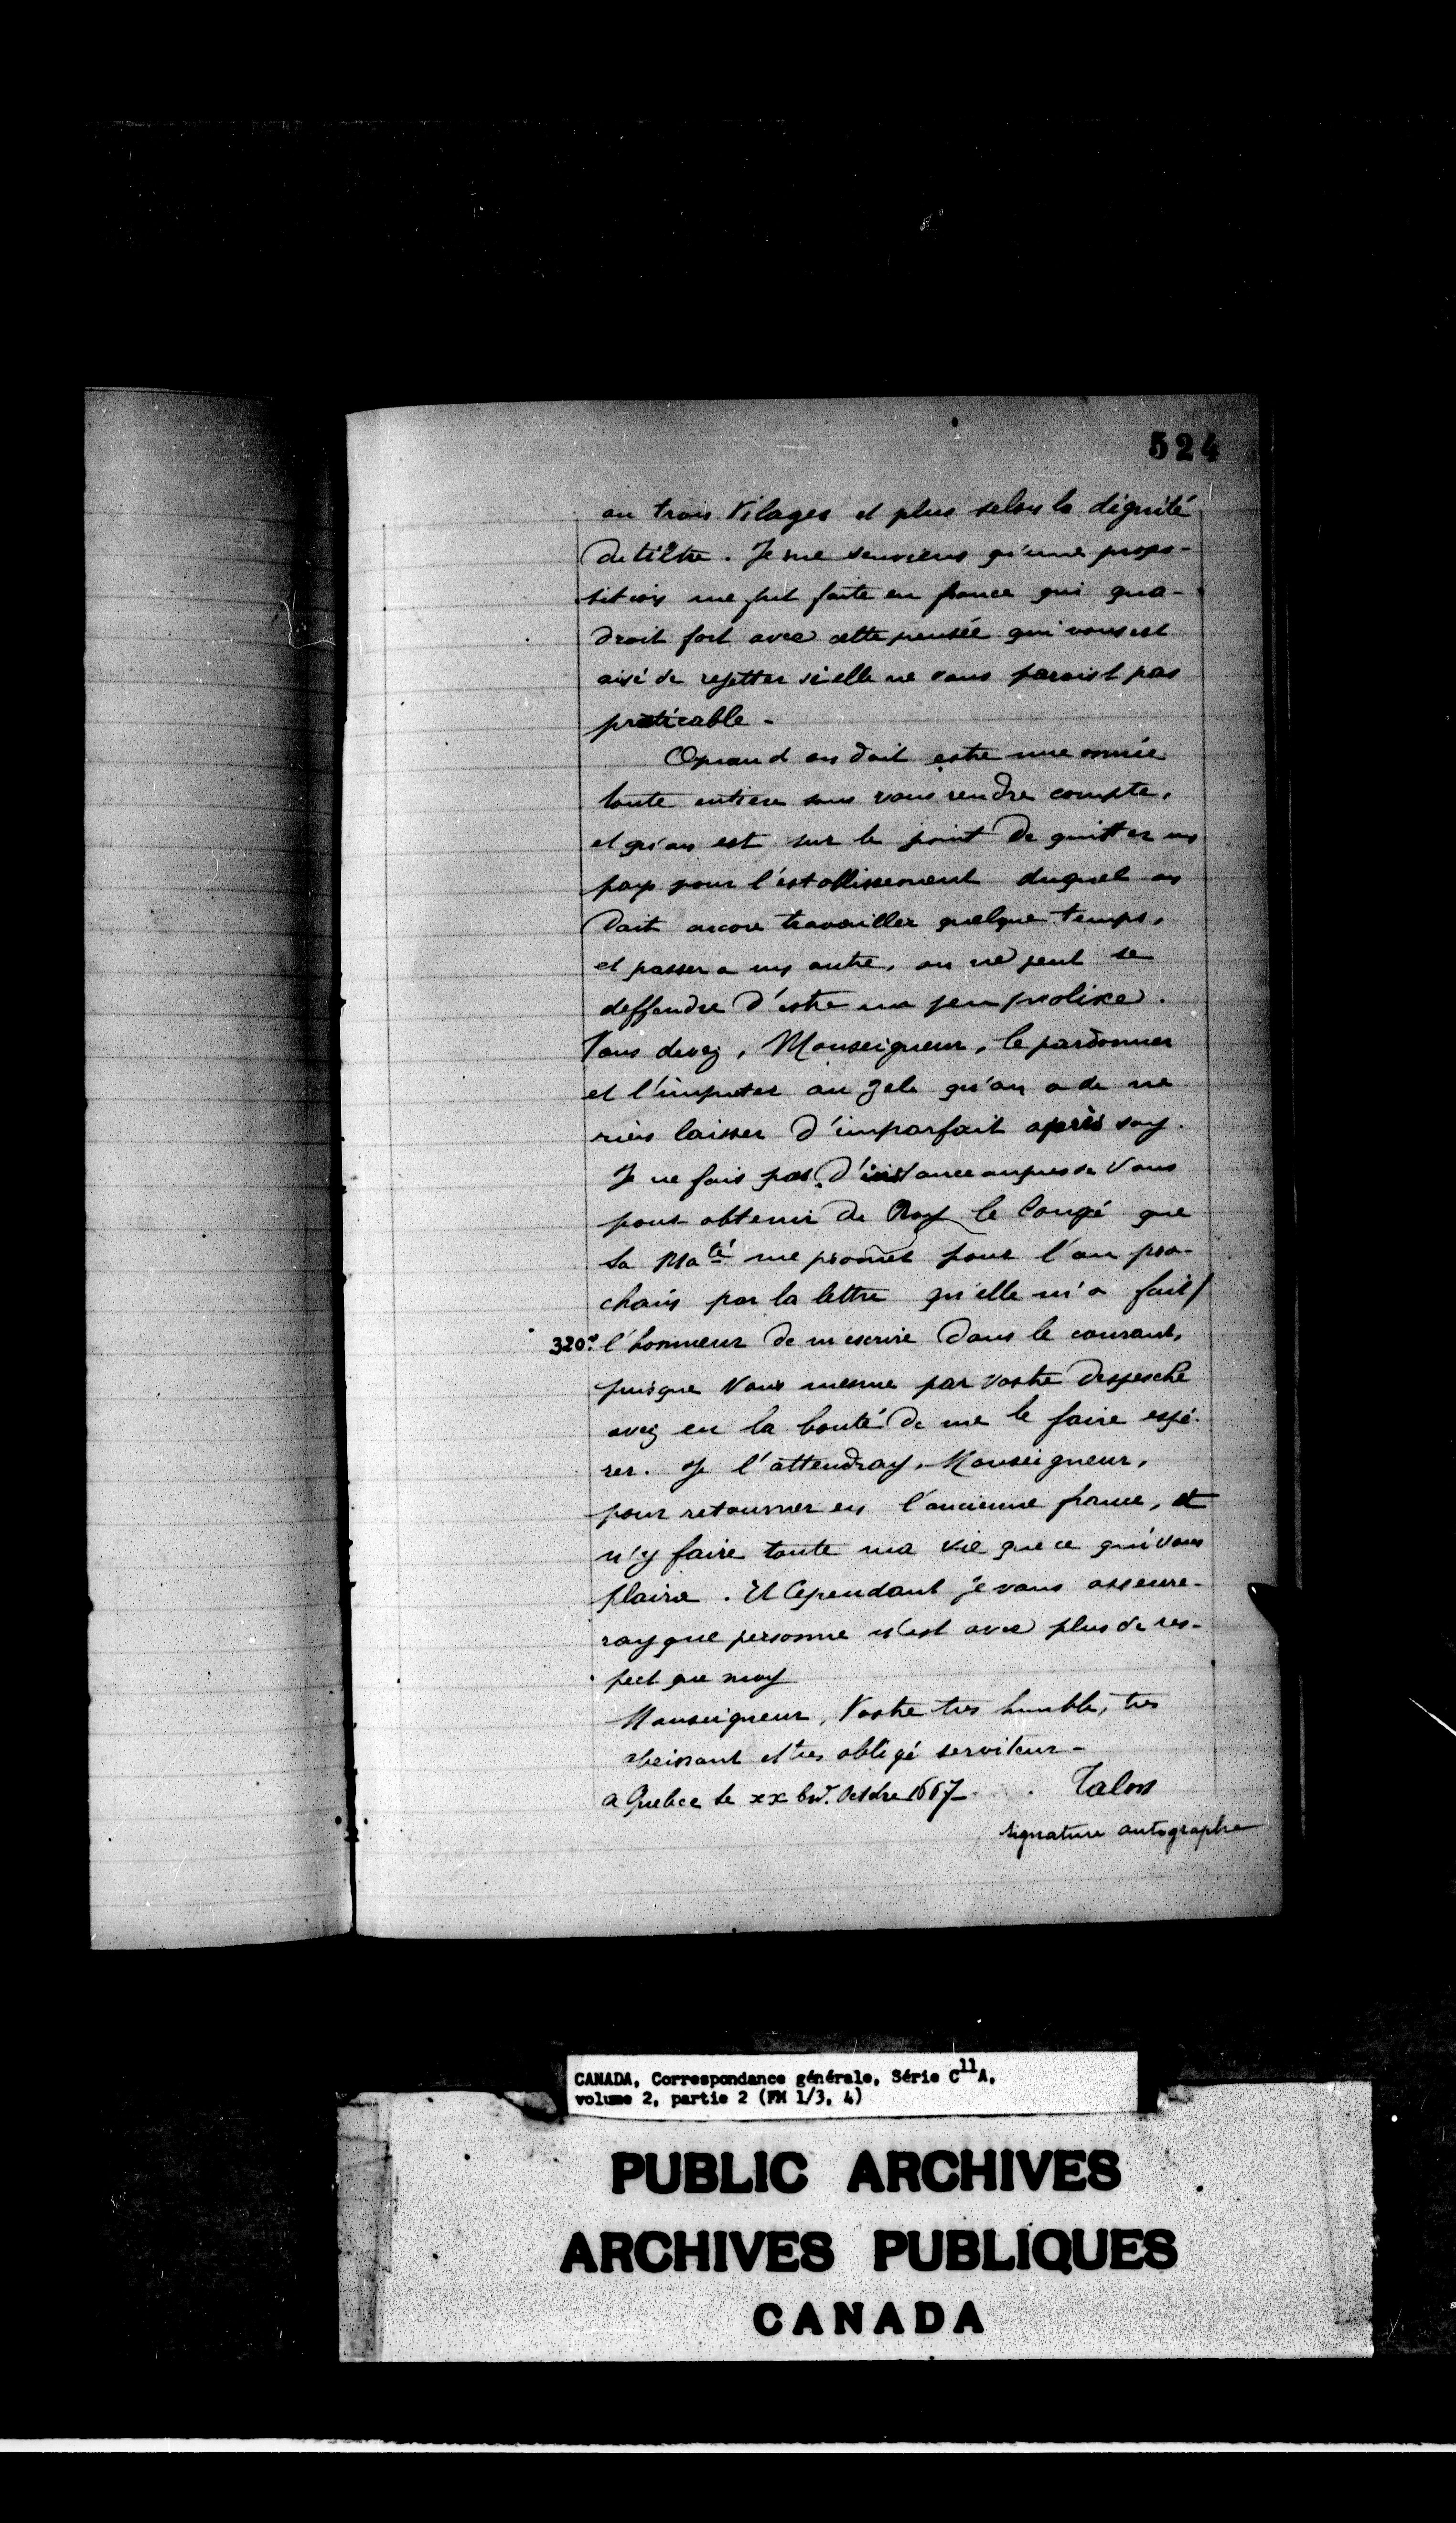 524
ou trois Vilages et plus selon la dignité
du tiltre. Je me souviens qu'une propo-
sition me fut faite en france qui qua-
droit fort avec cette pensée qui vous est
aisé de rejetter si elle ne vous paroist pas
praticable -
Quand on doit estre une année
toute entiere sans vous rendre compte,
et qu'on est sur le point de quitter un
pays pour l'establissement duquel on
doit encore travailler quelque temps,
et passer a un autre, on ne peut se
deffendre d'estre un peu prolixe.
Vous devez, Monseigneur, le pardonner
et l'imputer au zele qu'on a de ne
rien laisser d'imparfait après soy.
Je ne fais pas d'instance aupres de Vous
pour obtenir du Roy le Congé que
Sa Maté me promet pour l'an pro-
chain par la lettre qu'elle m'a fait/
320v l'honneur de m'escrire dans le courant,
puisque Vous mesme par vostre despesche
avez eu la bonté de me le faire espé-
rer. Je l'attendray, Monseigneur,
pour retourner en l'ancienne france, et
n'y faire toute ma vie que ce qui vous
plaira. Et Cependant je vous asseure-
ray que personne n'est avec plus de res-
pect que moy
Monseigneur, Vostre tres humble, tres
obeissant et tres obligé serviteur -
a Quebec le xx Octobre 1667. Talon
signature autographe
CANADA, Correspondance générale, Série C11A,
volume 2, partie 2 (FM 1/3, 4)
PUBLIC ARCHIVES
ARCHIVES PUBLIQUES
CANADA